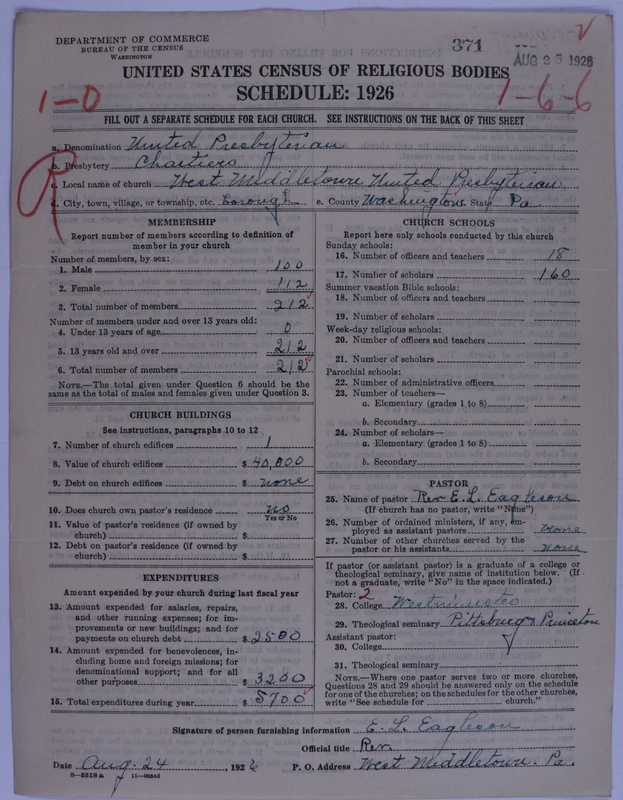 DEPARTMENT OF COMMERCE
BUREAU OF THE CENSUS
WASHINGTON
371
AUG 25 1926
UNITED STATES CENSUS OF RELIGIOUS BODIES
SCHEDULE: 1926
1-0
1-6-6
FILL OUT A SEPARATE SCHEDULE FOR EACH CHURCH. SEE INSTRUCTIONS ON THE BACK OF THIS SHEET
a. Denomination United Presbyterian
b. Presbytery Chartiers
c. Local name of church West Middletown United Presbyterian
d. City, town, village, or township, etc. Borough e. County Washington State Pa
MEMBERSHIP
Report number of members according to definition of
member in your church
Number of members, by sex:
1. Male 100
2. Female 112
3. Total number of members 212
Number of members under and over 13 years old:
4. Under 13 years of age 0
5. 13 years old and over 212
6. Total number of members 212
NOTE.—The total given under Question 6 should be the
same as the total of males and females given under Question 3.
CHURCH BUILDINGS
See instructions, paragraphs 10 to 12
7. Number of church edifices 1
8. Value of church edifices $ 40,000
9. Debt on church edifices $ none
10. Does church own pastor's residence no
Yes or No
11. Value of pastor's residence (if owned by
church) $
12. Debt on pastor's residence (if owned by
church) $
EXPENDITURES
Amount expended by your church during last fiscal year
13. Amount expended for salaries, repairs,
and other running expenses; for im-
provements or new buildings; and for
payments on church debt $ 2500
14. Amount expended for benevolences, in-
cluding home and foreign missions; for
denominational support; and for all
other purposes $ 3200
15. Total expenditures during year $ 5700
CHURCH SCHOOLS
Report here only schools conducted by this church
Sunday schools:
16. Number of officers and teachers 18
17. Number of scholars 160
Summer vacation Bible schools:
18. Number of officers and teachers
19. Number of scholars
Week-day religious schools:
20. Number of officers and teachers
21. Number of scholars
Parochial schools:
22. Number of administrative officers
23. Number of teachers—
a. Elementary (grades 1 to 8)
b. Secondary
24. Number of scholars—
a. Elementary (grades 1 to 8)
b. Secondary
PASTOR
25. Name of pastor Rev E. L. Eagleson
(If church has no pastor, write "None")
26. Number of ordained ministers, if any, em-
ployed as assistant pastors none
27. Number of other churches served by the
pastor or his assistants none
If pastor (or assistant pastor) is a graduate of a college or
theological seminary, give name of institution below. (If
not a graduate, write "No" in the space indicated.)
Pastor: 2
28. College Westminster
29. Theological seminary Pittsburg Princeton
Assistant pastor:
30. College
31. Theological seminary
NOTE.—Where one pastor serves two or more churches,
Questions 28 and 29 should be answered only on the schedule
for one of the churches; on the schedules for the other churches,
write "See schedule for church."
Signature of person furnishing information E. L. Eagleson
Official title Rev.
Date Aug. 24, 1926 P. O. Address West Middletown. Pa.
8—5518 a